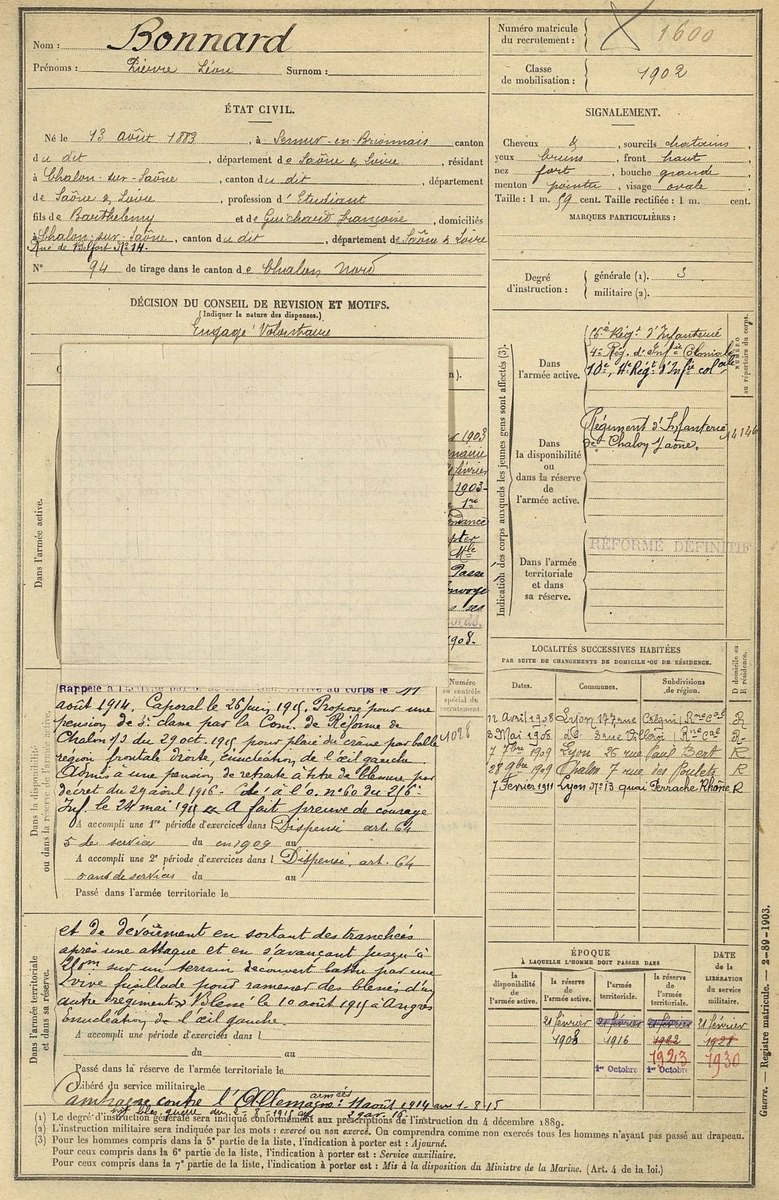 Nom : Bonnard
Prénoms : Pierre Léon Surnom :
Numéro matricule du recrutement : 1600
Classe de mobilisation : 1902
ÉTAT CIVIL.
Né le 13 août 1883, à Semur-en-Brionnais canton
du dit, département de Saône & Loire, résidant
à Chalon-sur-Saône, canton du dit, département
de Saône & Loire, profession d'Etudiant
fils de Barthelemy et de Guichard Françoise, domiciliés
à Chalon-sur-Saône, canton du dit, département de Saône & Loire
Rue de Belfort No 14.
N° 94 de tirage dans le canton de Chalon Nord
DÉCISION DU CONSEIL DE REVISION ET MOTIFS.
(Indiquer la nature des dispenses.)
Engagé Volontaire
SIGNALEMENT.
Cheveux & , sourcils chatains
yeux bruns , front haut
nez fort , bouche grande
menton pointu , visage ovale
Taille : 1 m. 59 cent. Taille rectifiée : 1 m. cent.
MARQUES PARTICULIÈRES :
Degré d'instruction : générale (1). 3
militaire (2).
Indication des corps auxquels les jeunes gens sont affectés (3).
NUMÉRO au répertoire du corps.
Dans l'armée active.
Rég.t d'Infanterie
4e Rég. d'Inf.ie Coloniale
10e, 4e Rég.t d'Inf.ie col.ale
Dans la disponibilité ou dans la réserve de l'armée active.
Régiment d'Infanterie
de Chalon s/ Saône.
Dans l'armée territoriale et dans sa réserve.
RÉFORMÉ DÉFINITIF
Dans l'armée active.
1903
février
1903-
Passe
1908-
Numéro au contrôle spécial du recrutement
1028
Dans la disponibilité ou dans la réserve de l'armée active.
Rappelé à l'activité arrivé au corps le 11
août 1914. Caporal le 26 juin 1915. Proposé pour une
pension de 3e classe par la Com. de Réforme de
Chalon s/s du 29 oct. 1915 pour plaie du crâne par balle
région frontale droite, énucléation de l'œil gauche
Admis à une pension de retraite à titre de blessure par
décret du 29 avril 1916 - Cité à l'o. no 60 du 216e
Inf. le 24 mai 1915 A fait preuve de courage
A accompli une 1re période d'exercices dans l Dispensé art. 64
5 de service du en 1909 au
A accompli une 2e période d'exercices dans l Dispensé. art. 64
5 ans de services du au
Passé dans l'armée territoriale le
Dans l'armée territoriale et dans sa réserve.
et de dévouement en sortant des tranchées
après une attaque et en s'avançant jusqu'à
m sur un terrain découvert battu par une
vive fusillade pour ramener des blessés d'un
autre régiment » Blessé le 10 août 1915 à Angres
Enucléation de l'œil gauche.
A accompli une période d'exercices dans l
du au
Passé dans la réserve de l'armée territoriale le
Libéré du service militaire le
Campagne contre l'Allemagne: 11 août 1914 au 1-8-15
LOCALITÉS SUCCESSIVES HABITÉES
PAR SUITE DE CHANGEMENTS DE DOMICILE OU DE RÉSIDENCE.
Dates. Communes. Subdivisions de région. D domicile ou R résidence.
12 Avril 1908 Lyon 177 rue Créqui R
3 Mai 1908 do 3 rue R
7 7bre 1909 Lyon 26 rue Paul Bert R
28 9bre 1909 Chalon 7 rue des Poulets R
7 Février 1911 Lyon No 13 quai Perrache Rhône R
ÉPOQUE
À LAQUELLE L'HOMME DOIT PASSER DANS
DATE de la LIBÉRATION du service militaire.
la disponibilité de l'armée active. la réserve de l'armée active. l'armée territoriale. la réserve de l'armée territoriale.
21 février 21 février 21 février 21 février
1908 1916 1922 1928
1923 1930
1er Octobre 1er Octobre
(1) Le degré d'instruction générale sera indiqué conformément aux prescriptions de l'instruction du 4 décembre 1889.
(2) L'instruction militaire sera indiquée par les mots : exercé ou non exercé. On comprendra comme non exercés tous les hommes n'ayant pas passé au drapeau.
(3) Pour les hommes compris dans la 5e partie de la liste, l'indication à porter est : Ajourné.
Pour ceux compris dans la 6e partie de la liste, l'indication à porter est : Service auxiliaire.
Pour ceux compris dans la 7e partie de la liste, l'indication à porter est : Mis à la disposition du Ministre de la Marine. (Art. 4 de la loi.)
Guerre. — Registre matricule. — 2-89-1903.